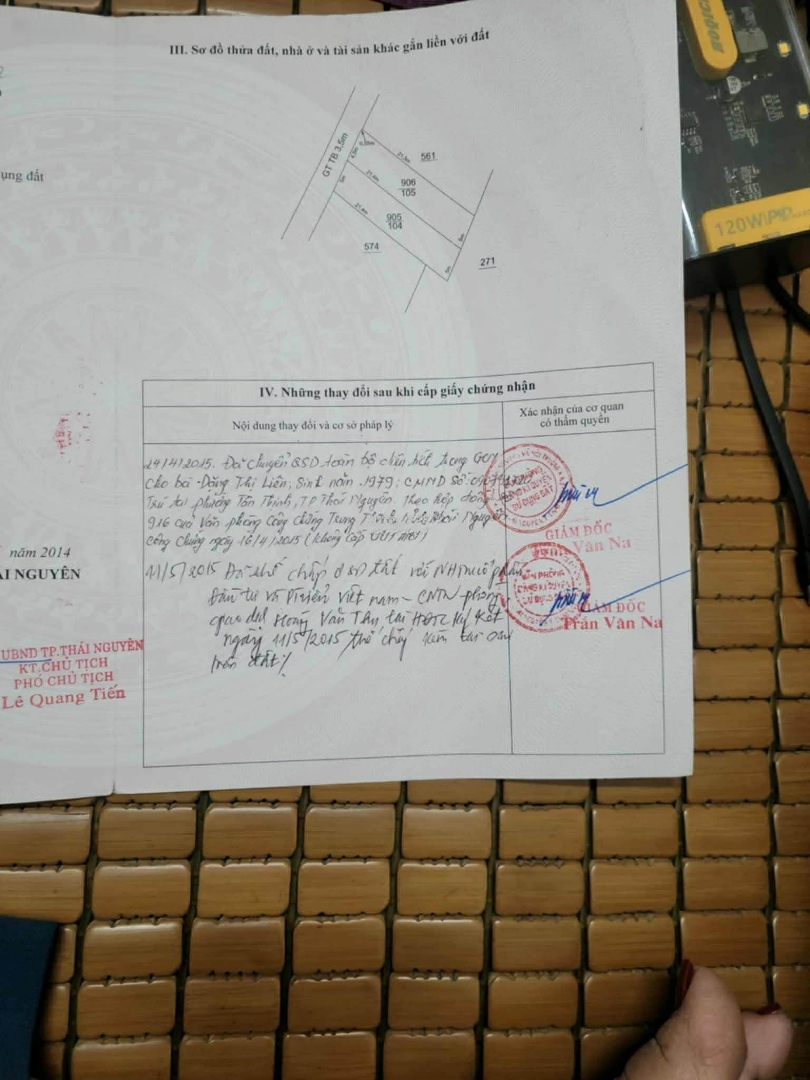 III. Sơ đồ thửa đất, nhà ở và tài sản khác gắn liền với đất
ụng đất
GT TB 3,5m
561
906
105
905
104
574
271
IV. Những thay đổi sau khi cấp giấy chứng nhận
Nội dung thay đổi và cơ sở pháp lý
Xác nhận của cơ quan
có thẩm quyền
24/4/2015. Đã chuyển QSD toàn bộ diện tích trong GCN
cho bà Đặng Thị Liên, Sinh năm 1979; CMND số:
Trú tại phường Tân Thịnh, TP Thái Nguyên. Theo hợp đồng
916 của Văn phòng Công chứng Trung Nguyên
công chứng ngày 16/4/2015 (không cấp
GIÁM ĐỐC
Văn Na
11/5/2015 Đã thế chấp đất với NH
Đầu tư và Phát triển Việt nam - CNTN phòng
giao dịch Hoàng Văn Thụ tại HĐTC ký kết
ngày 11/5/2015 thế chấp
trên đất/.
GIÁM ĐỐC
Trần Văn Na
năm 2014
ÁI NGUYÊN
UBND TP.THÁI NGUYÊN
KT.CHỦ TỊCH
PHÓ CHỦ TỊCH
Lê Quang Tiến
120W PD